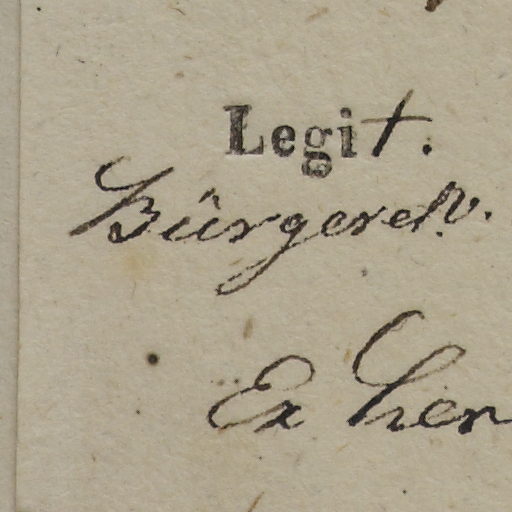 Legit.
Bürger
Ex her